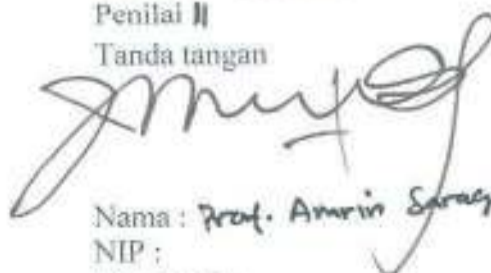 Penilai II
Tanda tangan
Nama : Prof. Amrin Sarag
NIP :